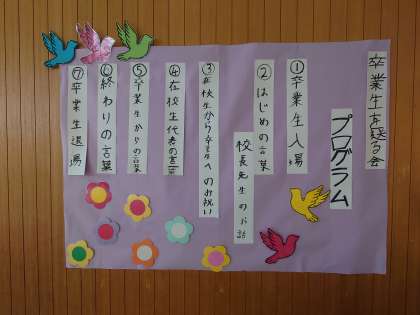 卒業生を送る会
プログラム
①卒業生入場
②はじめの言葉
校長先生のお話
③在校生から卒業生へのお祝い
④在校生代表の言葉
⑤卒業生からの言葉
⑥終わりの言葉
⑦卒業生退場